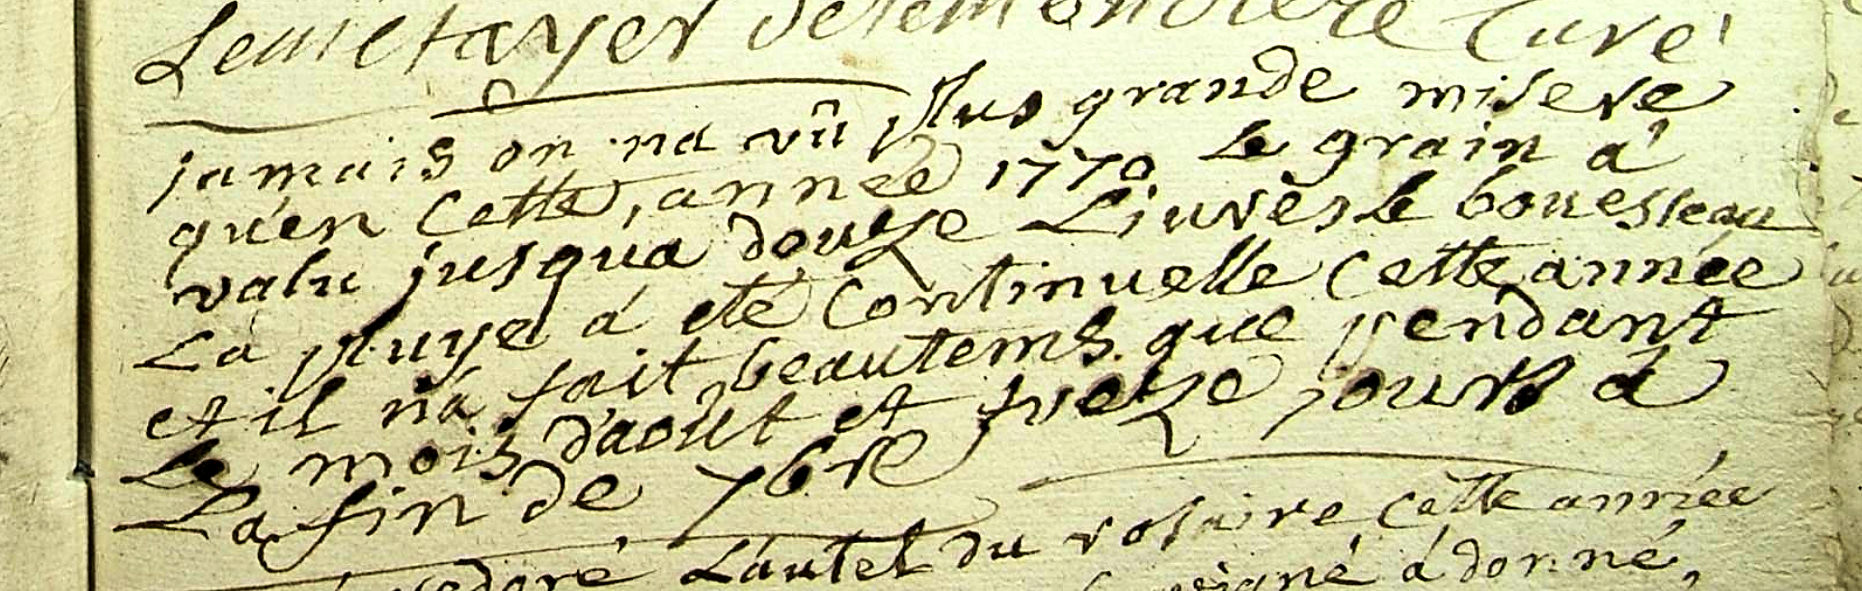 curé
jamais on na vû plus grande misere
qu'en cette, année 1770 Le grain á
valu jusqua douze Liures le bouesseau
La pluye á eté continuelle cette année
et il ná fait beautems que pendant
Le mois d'août et treize jours á
La fin de 7bre
redoré L'autel du rosaire cette année
á donné,